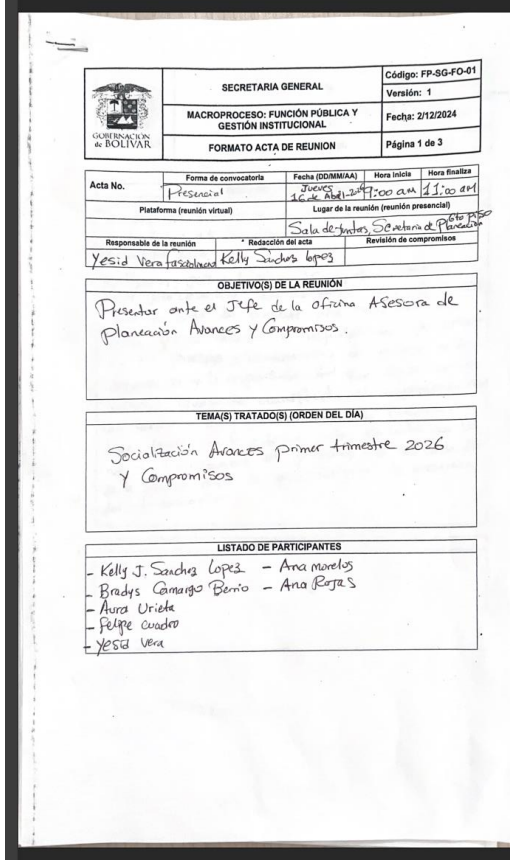 GOBERNACIÓN
de BOLÍVAR
SECRETARIA GENERAL
MACROPROCESO: FUNCIÓN PÚBLICA Y
GESTIÓN INSTITUCIONAL
FORMATO ACTA DE REUNION
Código: FP-SG-FO-01
Versión: 1
Fecha: 2/12/2024
Página 1 de 3
Acta No.
Forma de convocatoria
Presencial
Fecha (DD/MM/AA)
Jueves
16 de Abril-
Hora inicia
9:00 am
Hora finaliza
11:00 am
Plataforma (reunión virtual)
Lugar de la reunión (reunión presencial)
Sala de juntas, Secretaria de Planeación
6to piso
Responsable de la reunión
* Redacción del acta
Revisión de compromisos
Yesid Vera
Kelly Sanchez lopez
OBJETIVO(S) DE LA REUNIÓN
Presentar ante el Jefe de la oficina Asesora de
Planeación Avances y Compromisos.
TEMA(S) TRATADO(S) (ORDEN DEL DÍA)
Socialización Avances primer trimestre 2026
Y Compromisos
LISTADO DE PARTICIPANTES
- Kelly J. Sanchez Lopez - Ana morelos
- Bradys Camargo Berrio - Ana Rojas
- Aura Urieta
- Felipe cuadro
- Yesid Vera